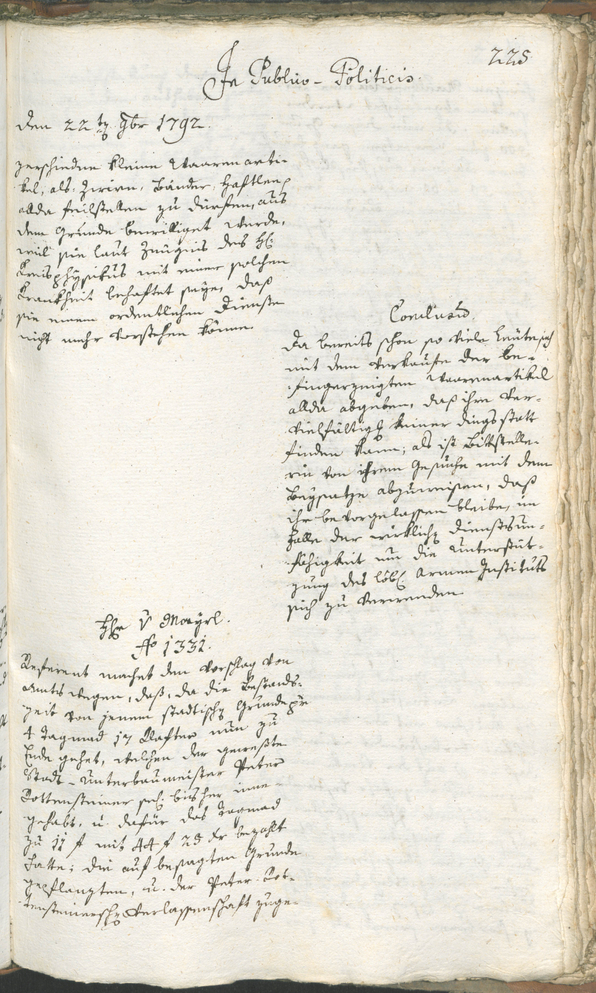 225
In Publico-Politicis.
den 22 tn 9br 1792.
verschiedne kleine Waarenarti-
kel, als, Zwirn, Bänder, Haftlen
allda feilstellen zu dürfen, aus
dem Grunde bewilliget werde,
weil sie laut Zeugnis des H:
Kreisphysikus mit einer solchen
Krankheit behaftet seye, daß
sie einem ordentlichen Dienste
nicht mehr vorstehen könne
Conclusum
Da bereits schon so viele Leute sich
mit dem Verkaufe der be-
fingerzeigten Waarenartikel
allda abgeben, daß ihre Ver-
vielfältigg keiner dings statt
finden kann; als ist Bittstelle-
rin von ihrem Gesuche mit dem
Beysatze abzuweisen, daß
ihr bevorgelassen bleibe, im
Falle der wirklichen Dienstsun-
fähigkeit um die Unterstüt-
zung des löbl. Armen Instituts
sich zu verwenden
Hr v Mayrl.
No 1331.
Referent machet den Vorschlag von
Amts wegen, daß, da die Bestands-
zeit von jenem städtischen Grunde pr
4 Tagmad 17 Klafter nun zu
Ende gehet, welchen der geweßte
Stadt-Unterbaumeister Peter
Rottensteiner sel. bisher inne-
gehabt, u. dafür das Tagmad
zu 11 f mit 44 f 28 kr bezahlt
hatte; die auf besagten Grunde
gepflanzten, u. der Peter Rot-
tensteinerschen Verlassenschaft zuge-